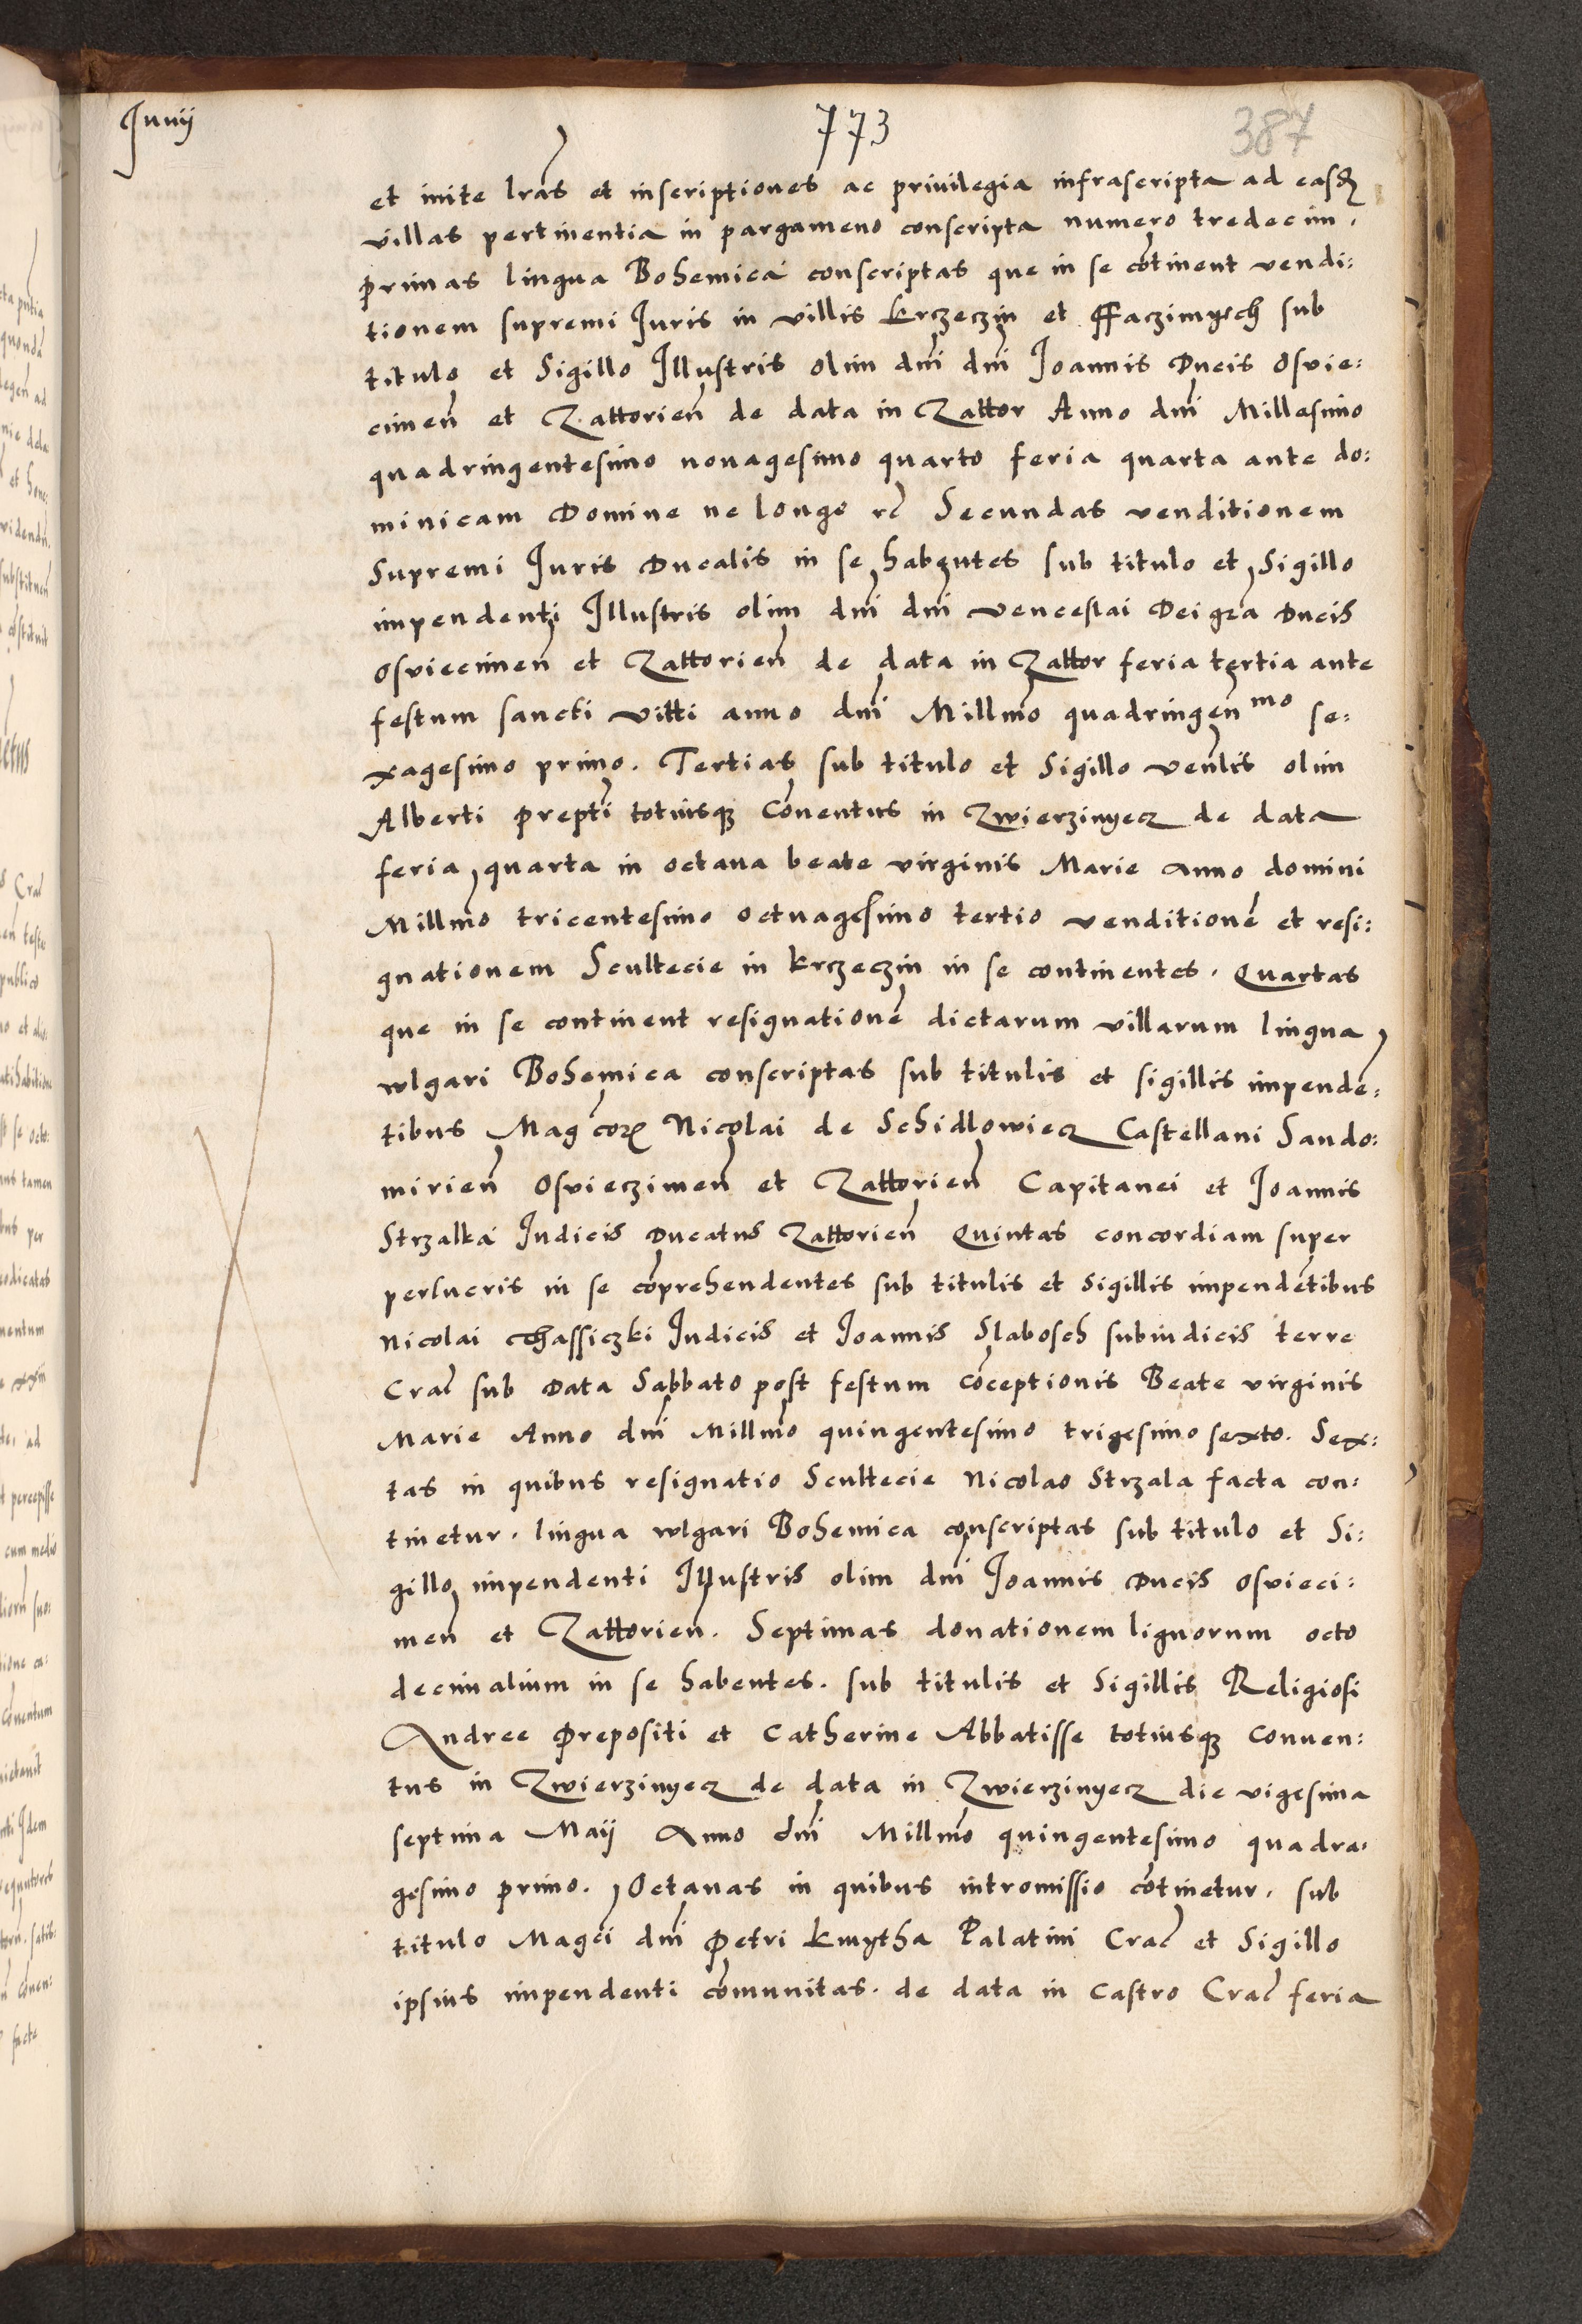 Junij
773
387
et inite lras et inscriptiones ac priuilegia infrascripta ad easdē
villas pertinentia in pargameno conscripta numero tredecim.
primas lingua Bohemica conscriptas que in se cōtinent vendi:
tionem supremi Juris in villis krczeczin et ffaczimyech sub
titulo et Sigillo Illustris olim dni dni Joannis Ducis Osvie:
cimeñ et Zattorieñ de data in Zattor Anno dni Millesimo
quadringentesimo nonagesimo quarto feria quarta ante do:
minicam Domine ne longe rc Secundas venditionem
Supremi Juris Ducalis in se habentes sub titulo et Sigillo
impendenti Illustris olim dni dni venceslai Dei gra Ducis
Osviecimeñ et Zattorieñ de data in Zattor feria tertia ante
festum sancti vitti anno dni Millmo quadringenmo se:
xagesimo primo. Tertias sub titulo et Sigillo venlis olim
Alberti prepti totiusq Cōuentus in Zwierzinyecz de data
feria quarta in octaua beate virginis Marie anno domini
Millmo tricentesimo octuagesimo tertio venditionē et resi:
gnationem Scultecie in krczeczin in se continentes. Quartas
que in se continent resignationē dictarum villarum lingua
wlgari Bohemica conscriptas sub titulis et sigillis impende:
tibus Magcor Nicolai de Schidlowiecz Castellani Sando:
mirieñ Osvieczimeñ et Zattorieñ Capitanei et Joannis
Strzalka Judicis Ducatus Zattorieñ Quintas concordiam super
perlucris in se cōprehendentes sub titulis et sigillis impendētibus
Nicolai Chassiczki Judicis et Joannis Slabosch subiudicis terre
Crac sub Data Sabbato post festum cōceptionis Beate virginis
Marie Anno dni Millmo quingentesimo trigesimo sexto. Sex:
tas in quibus resignatio Scultecie Nicolao Strzala facta con:
tinetur. lingua wlgari Bohemica conscriptas sub titulo et Si:
gillo impendenti Illustris olim dni Joannis Ducis Osvieci:
meñ et Zattorieñ. Septimas donationem lignorum octo
decimalium in se habentes. sub titulis et Sigillis Religiosi
Andree Prepositi et Catherine Abbatisse totiusq Conuen:
tus in Zwierzinyecz de data in Zwierzinyecz die vigesima
septima Maij Anno dni Millmo quingentesimo quadra:
gesimo primo. Octauas in quibus intromissio cōtinetur. sub
titulo Magci dni Petri kmytha Palatini Crac et Sigillo
ipsius impendenti cōmunitas. de data in Castro Crac feria